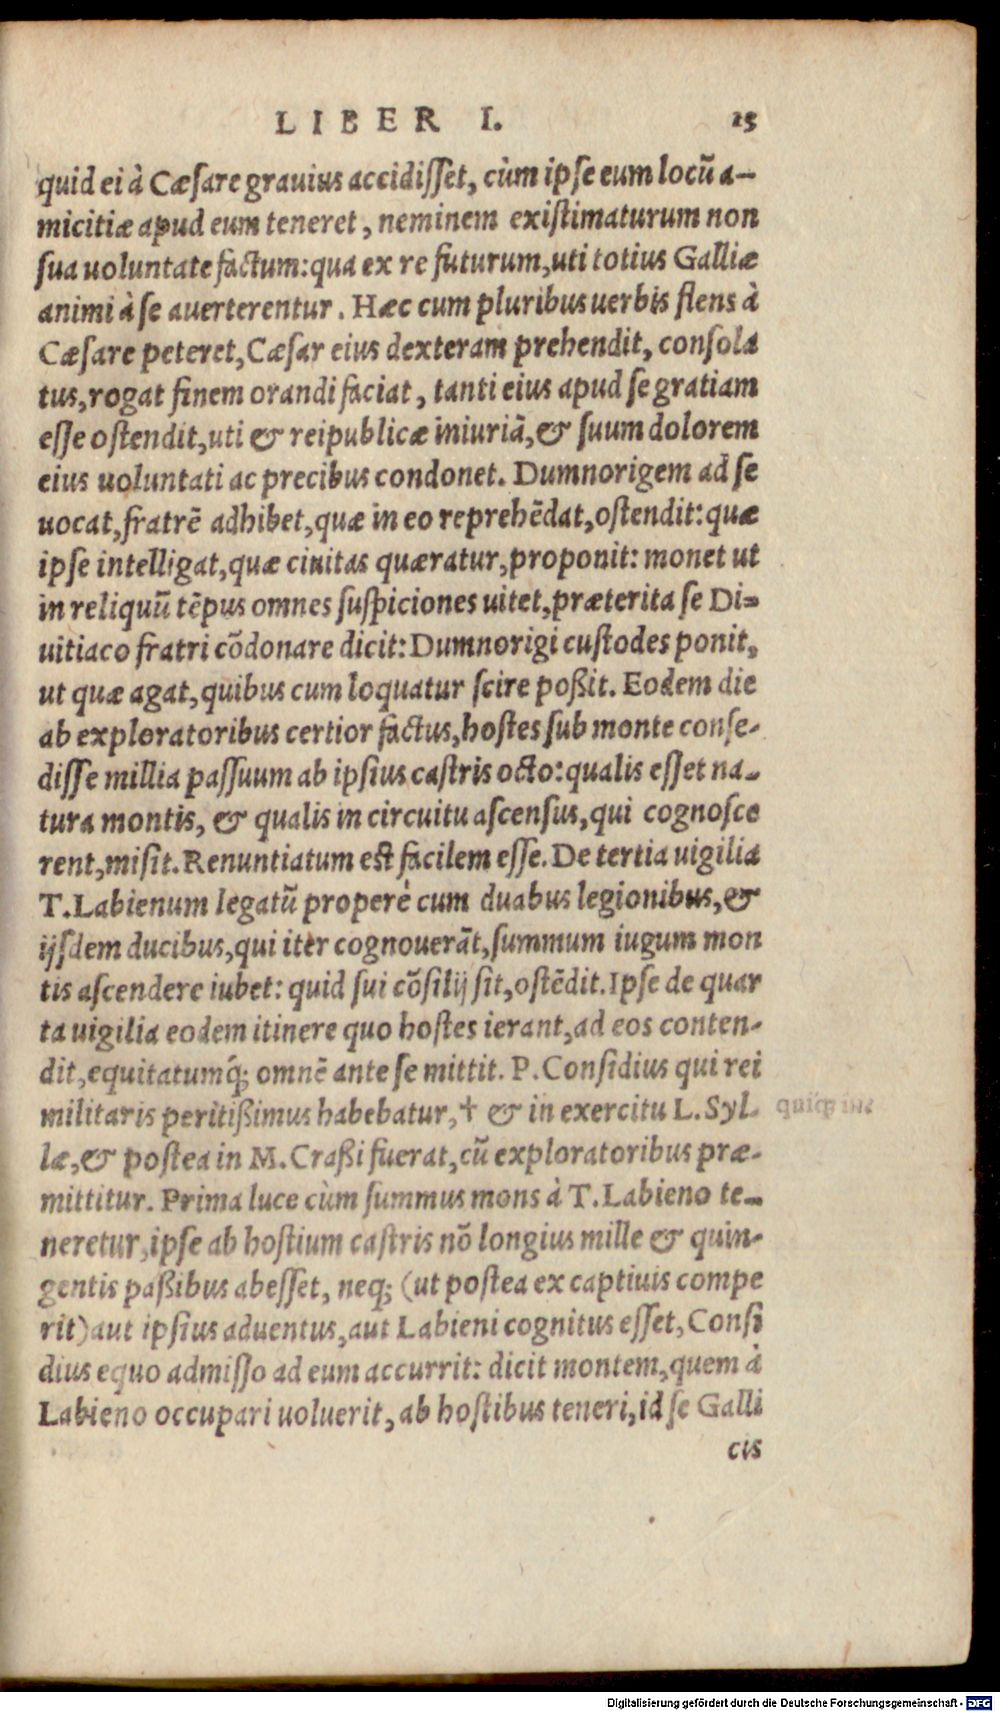 LIBER I. 15
quid ei à Cæsare grauius accidisset, cùm ipse eum locũ a-
micitiæ apud eum teneret, neminem existimaturum non
sua uoluntate factum: qua ex re futurum, uti totius Galliæ
animi à se auerterentur. Hæc cum pluribus uerbis flens à
Cæsare peteret, Cæsar eius dexteram prehendit, consola
tus, rogat finem orandi faciat, tanti eius apud se gratiam
esse ostendit, uti & reipublicæ iniuriã, & suum dolorem
eius uoluntati ac precibus condonet. Dumnorigem ad se
uocat, fratrẽ adhibet, quæ in eo reprehẽdat, ostendit: quæ
ipse intelligat, quæ ciuitas quæratur, proponit: monet ut
in reliquũ tẽpus omnes suspiciones uitet, præterita se Di-
uitiaco fratri cõdonare dicit: Dumnorigi custodes ponit,
ut quæ agat, quibus cum loquatur scire poßit. Eodem die
ab exploratoribus certior factus, hostes sub monte conse-
disse millia passuum ab ipsius castris octo: qualis esset na-
tura montis, & qualis in circuitu ascensus, qui cognosce
rent, misit. Renuntiatum est facilem esse. De tertia uigilia
T. Labienum legatũ properè cum duabus legionibus, &
ijsdem ducibus, qui iter cognouerãt, summum iugum mon
tis ascendere iubet: quid sui cõsilij sit, ostẽdit. Ipse de quar
ta uigilia eodem itinere quo hostes ierant, ad eos conten-
dit, equitatumq́; omnẽ ante se mittit. P. Considius qui rei
militaris peritißimus habebatur, † & in exercitu L. Syl-
læ, & postea in M. Craßi fuerat, cũ exploratoribus præ-
mittitur. Prima luce cùm summus mons à T. Labieno te-
neretur, ipse ab hostium castris nõ longius mille & quin-
gentis paßibus abesset, neq; (ut postea ex captiuis compe
rit) aut ipsius aduentus, aut Labieni cognitus esset, Consi
dius equo admisso ad eum accurrit: dicit montem, quem à
Labieno occupari uoluerit, ab hostibus teneri, id se Galli
cis
Digitalisierung gefördert durch die Deutsche Forschungsgemeinschaft - DFG